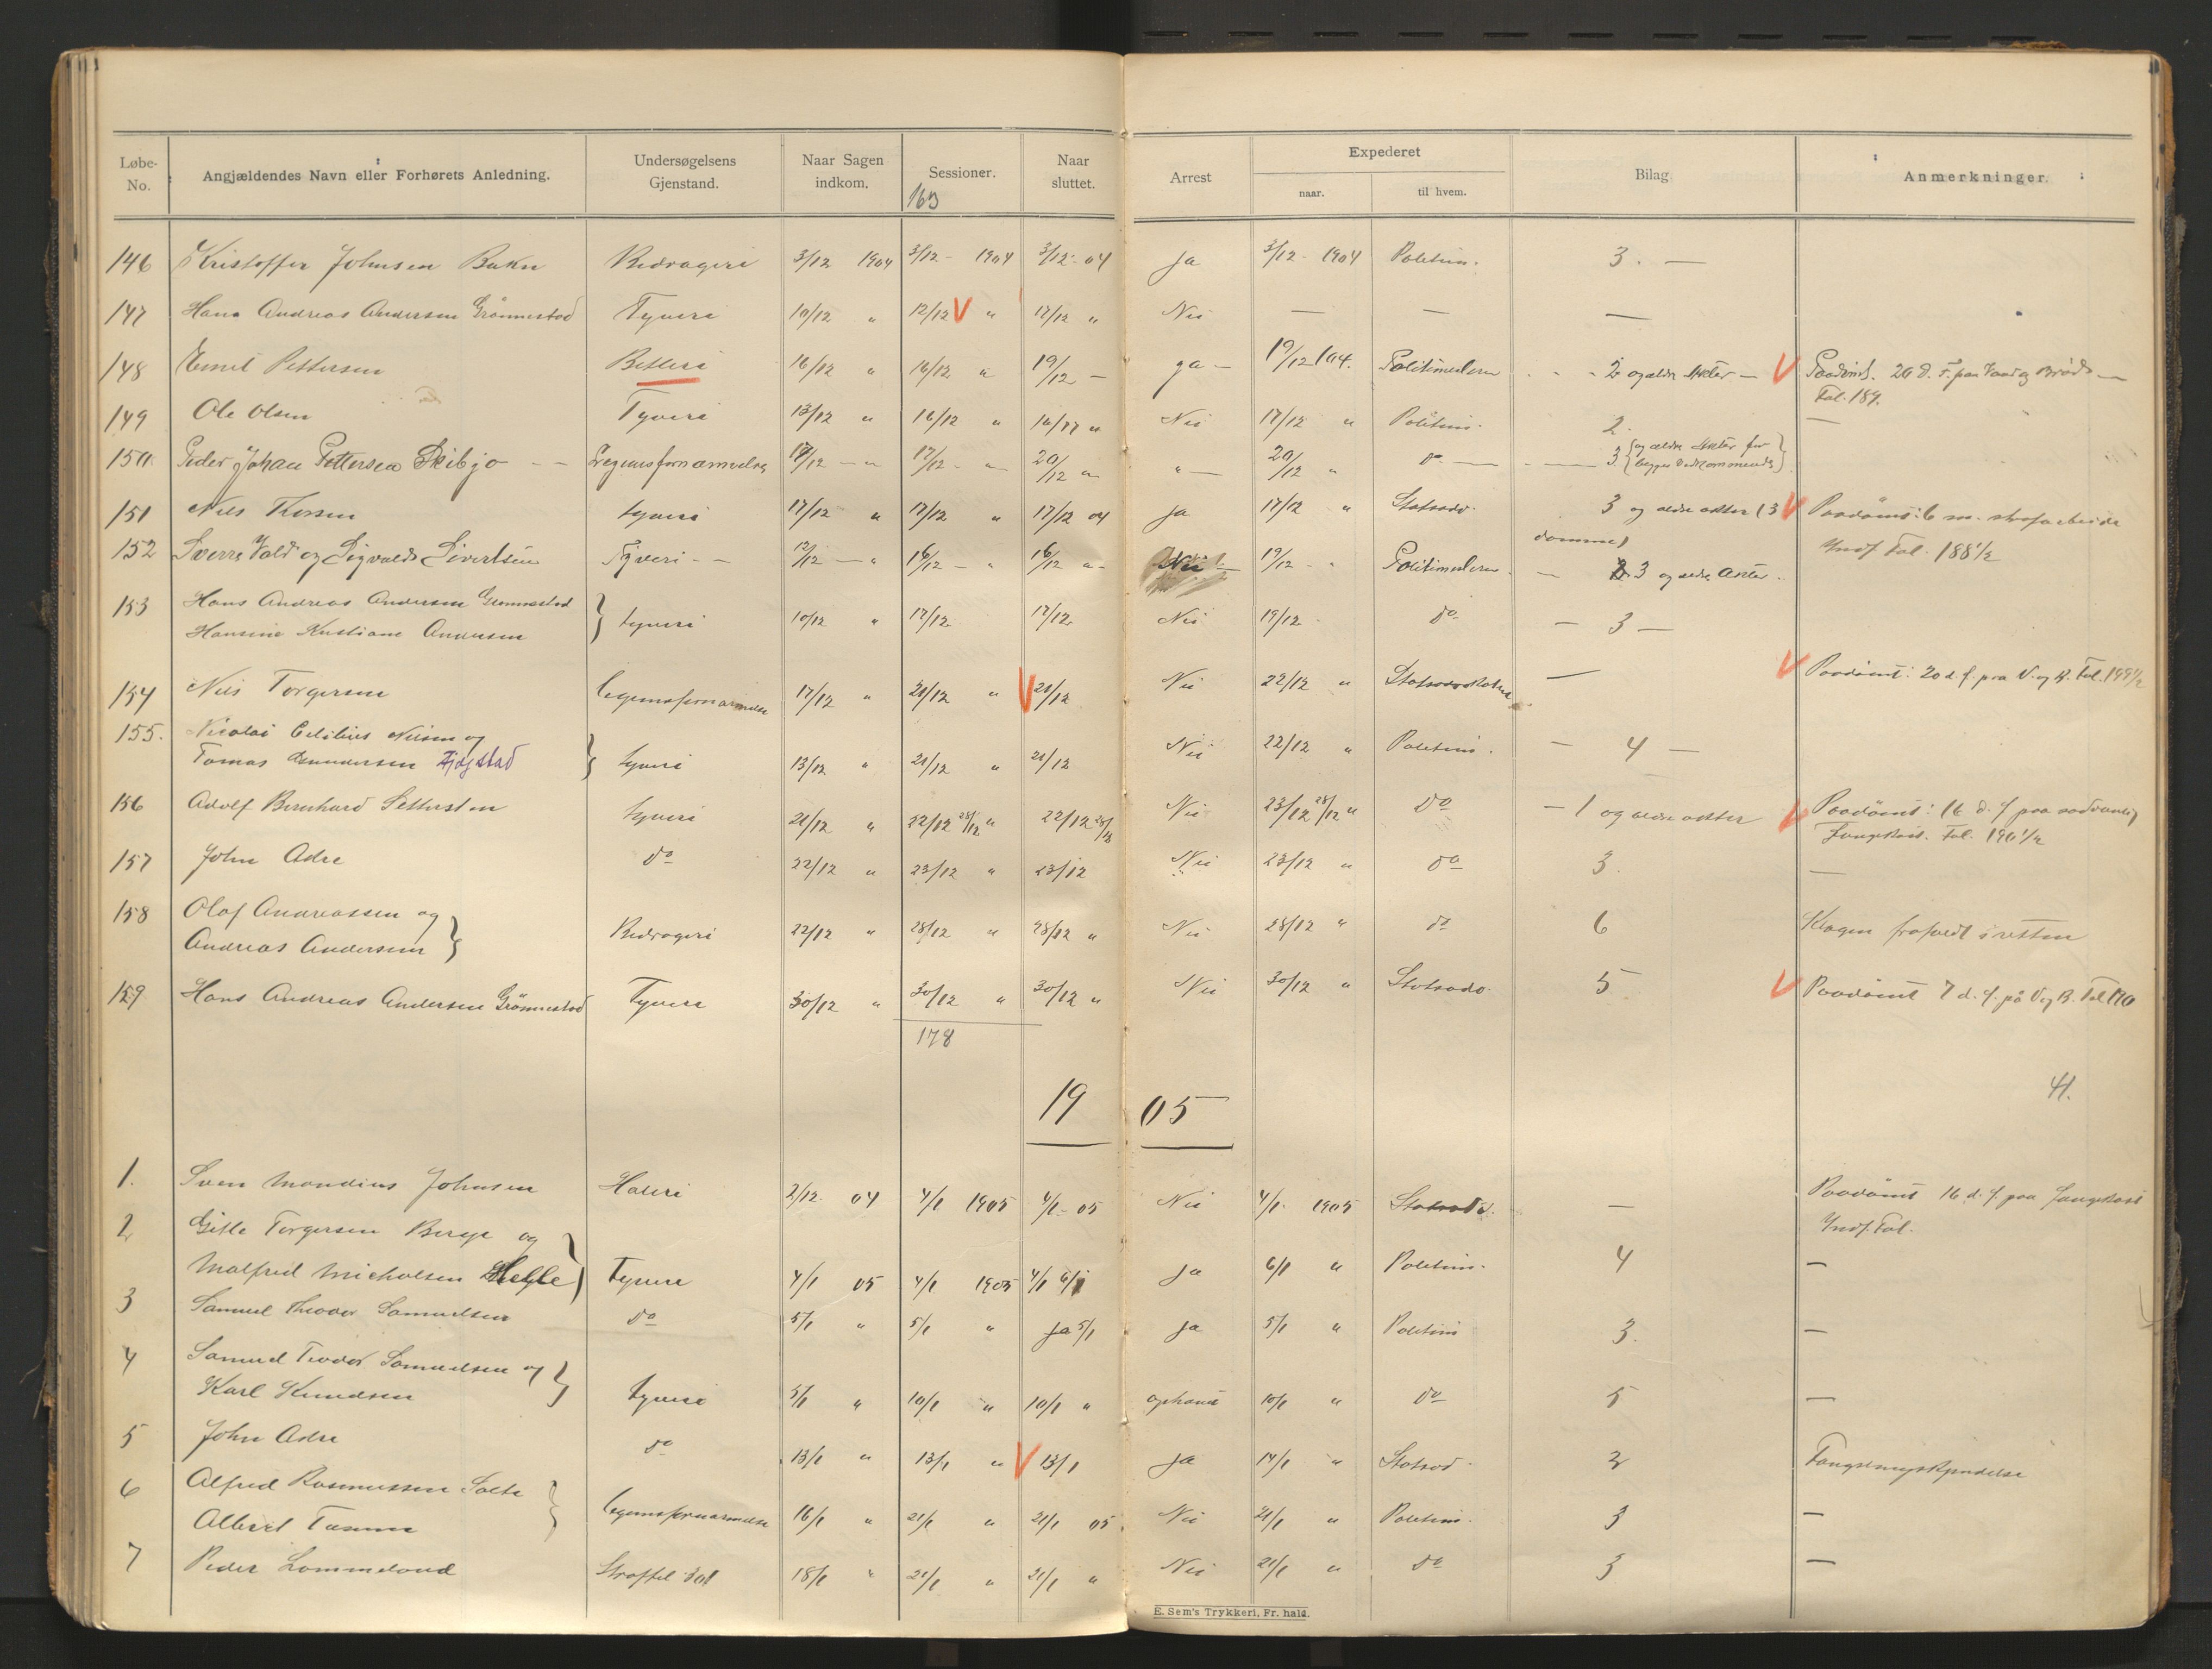 Løbe-No.	Angjældendes Navn eller Forhørets Anledning.	Undersøgelsens Gjenstand.	Naar Sagen indkom.	Sessioner.	Naar sluttet.	Arrest	Expederet naar.	til hvem.	Bilag	Anmerkninger.
163
146	Kristoffer Johnsen Bokn	Bedrageri	3/12 1904	3/12 - 1904	3/12 - 04	Ja	3/12 - 1904	Politim.	3. —
147	Hans Andreas Andersen Grönnestad	Tyveri	10/12 "	12/12 V "	17/12 "	Nei	—	—	—
148	Emil Pettersen	Betleri	16/12 "	16/12 "	19/12 —	Ja —	19/12 104.	Politimesteren	2 og ældre Akter —	V Paadömt. 20 d. F. paa Vand og Bröd —
Fol. 189.
149	Ole Olsen	Tyveri	13/12 "	16/12 "	16/17 "	Nei	17/12 "	Politim.	2.	—
150	Peder Johan Pettersen Skibjo — —	Legemsfornærmelse	17/12 — "	17/12 - "	20/12 "	" —	20/12 "	do —	3 { og ældre Akter for
begges Vedkommende }
151	Nils Thorsen	tyveri	17/12 "	17/12 "	17/12 04	Ja	17/12 "	Statsadv.	3 og ældre akter (3	V Paadömt: 6 m. strafarbeide
domme)	Indf. Fol. 188 1/2
152	Sverre Vold og Sigvald Sivertsen	Tyveri - —	12/12 — "	16/12 — "	16/12 " -	Nei —	19/12 - "	Politimesteren	— 3 og ældre Akter.
153	Hans Andreas Andersen Grönnestad
Hansine Kristiane Andersen }	tyveri	10/12 "	17/12	17/12	Nei	19/12	do	— 3 —
154	Nils Torgersen	legemsfornærmelse	17/12 "	21/12 "	V 21/12	Nei	22/12 "	—	V Paadömt: 20 d. f. paa V. og B. Fol. 199 1/2
155.	Nicolai Nilsen og
Tomas Gundersen }	tyveri	13/12 "	21/12 "	21/12	Nei	22/12 "	Politim.	— 4 —
156	Adolf Bernhard	tyveri	21/12 "	22/12 28/12 "	22/12 28/12	Nei	23/12 28/12 "	Do	— 1 og ældre akter	V Paadömt: 16 d. f. paa sædvanlig
Fangekost. Fol. 190 1/2
157	John Adre	do	22/12 "	23/12 "	23/12	Nei	23/12 "	do	3.	—
158	Olaf Andreassen og
Andreas Andersen }	Bedrageri	22/12 "	28/12 "	28/12 "	Nei	28/12 "	do	6	Klagen frafaldt i retten
159	Hans Andreas Andersen Grönnestad	Tyveri	30/12 "	30/12 "	30/12 "	Nei	30/12 "	Statsadv.	5	V Paadömt 7 d. f. på V og B. Fol 190
178
41.
19 05
1.	Sven Mandius Johnsen	Hæleri	2/12. 04	4/1 1905	4/1 - 05	Nei	4/1 1905	Statsadv.	—	Paadömt 16 d. f. paa fangekost
Indf. Fol.
2	Gitle Torgersen Berge og
Malfred Michalsen Helle }	Tyveri	4/1 05	4/1 1905	4/1 6/1	Ja	6/1 "	Politim.	4	—
3	Samuel Theodor Samuelsen	do	5/1 "	5/1 "	Ja 5/1	Ja	5/1 "	Politim	3.	—
4	Samuel Teodor Samuelsen og
Karl Knudsen }	tyveri	5/1 "	10/1 "	10/1 "	ophævet	10/1 "	do	5	—
5	John Adre	do	13/1 "	13/1 "	V 13/1	Ja	14/1 "	Statsad.	2
6	Alfred Rasmussen Salte
Albert }	legemsfornærmelse	16/1 "	21/1 "	21/1 05	Nei	21/1 "	Politim.	3	—
7	Peder Lommeland	18/1 "	21/1 "	21/1 "	Nei	21/1 "	do	3	—
E. Sem's Trykkeri, Fr. hald.